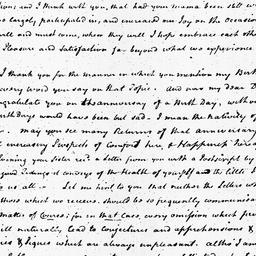 tion; and I think with you, that had your mama been still w
so largely, participated in, and encreased our Joy on the Occasion
will and must come, when they will I hope embrace each oth
Pleasure and Satisfaction far beyond what we experience
I thank you for the manner in which you mention my Birt
every word you say on that Topic. And now my Dear D
congratulate you on this anniversary of a Birth Day, with
Birth Days would have been but sad. I mean the nativity of
May you see many Returns of that anniversary
encreasing Prospects of Comfort here, & Happiness
morning your Sister rec'd a Letter from you with a Postscript by
good Tidings it conveys of the Health of yourself and the Little
to us all. Let me hint to you that neither the Letters wh
those which we receive should be so frequently communica
matter of Course; for in that Case, every omission which per
will naturally lead to conjectures and apprehensions &
& Fears which are always unpleasant. altho' I am